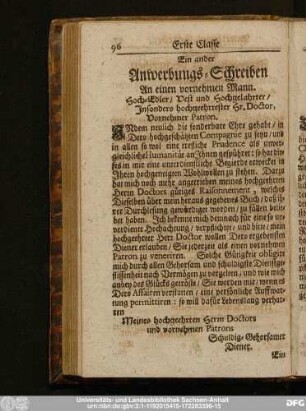 96 Erste Classe
Ein ander
Anwerbungs-Schreiben
An einen vornehmen Mann.
Hoch-Edler/ Vest und Hochgelahrter/
Insonders hochgeehrtester Hr. Doctor,
Vornehmer Patron.
INdem neulich die sonderbare Ehre gehabt/ in
Dero hochgeschätzten Compagnie zu seyn/ und
in allen so wol eine treffliche Prudence als unver-
gleichliche humanität an Ihnen gespühret: so hat die-
ses in mir eine unerdentliche Begierde erwecket in
Ihrem hochgeneigten Wohlwollen zu stehen. Darzu
hat mich noch mehr angetrieben meines hochgeehrten
Herrn Doctors gütiges Raisonnement, welches
Dieselben über mein heraus gegebenes Buch/ daß ih-
rer Durchlesung gewürdiget worden/ zu fällen belie-
bet haben. Ich bekenne mich dennoch für eine so un-
verdiente Hochachtung/ verpflichtet/ und bitte: mein
hochgeehrter Herr Doctor wollen Dero ergebensten
Diener erlauben/ Sie jederzeit als einen vornehmen
Patron zu veneriren. Solche Gütigkeit obligiret
mich durch allen Gehorsam und schuldigste Dienstge-
flissenheit nach Vermögen zu vergelten/ und wie mich
anbey des Glücks getröste/ Sie werden mir/ wenn es
Dero Affairen verstatten/ eine persönliche Aufwar-
tung permittiren: so will dafür Lebenslang verhar-
ren
Meines hochgeehrten Herrn Doctors
und vornehmen Patrons
Schuldig-Gehorsamer
Diener.
Ein
Universitäts- und Landesbibliothek Sachsen-Anhalt
urn:nbn:de:gbv:3:1-1192015415-172283396-15
DFG